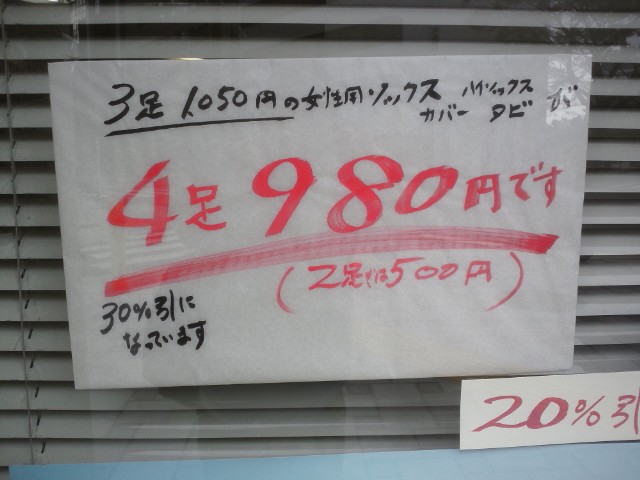 3足 1,050円の女性用ソックス ハイソックス カバー タビ が
4足 980円です
(2足では500円)
30%引に
なっています
20%引